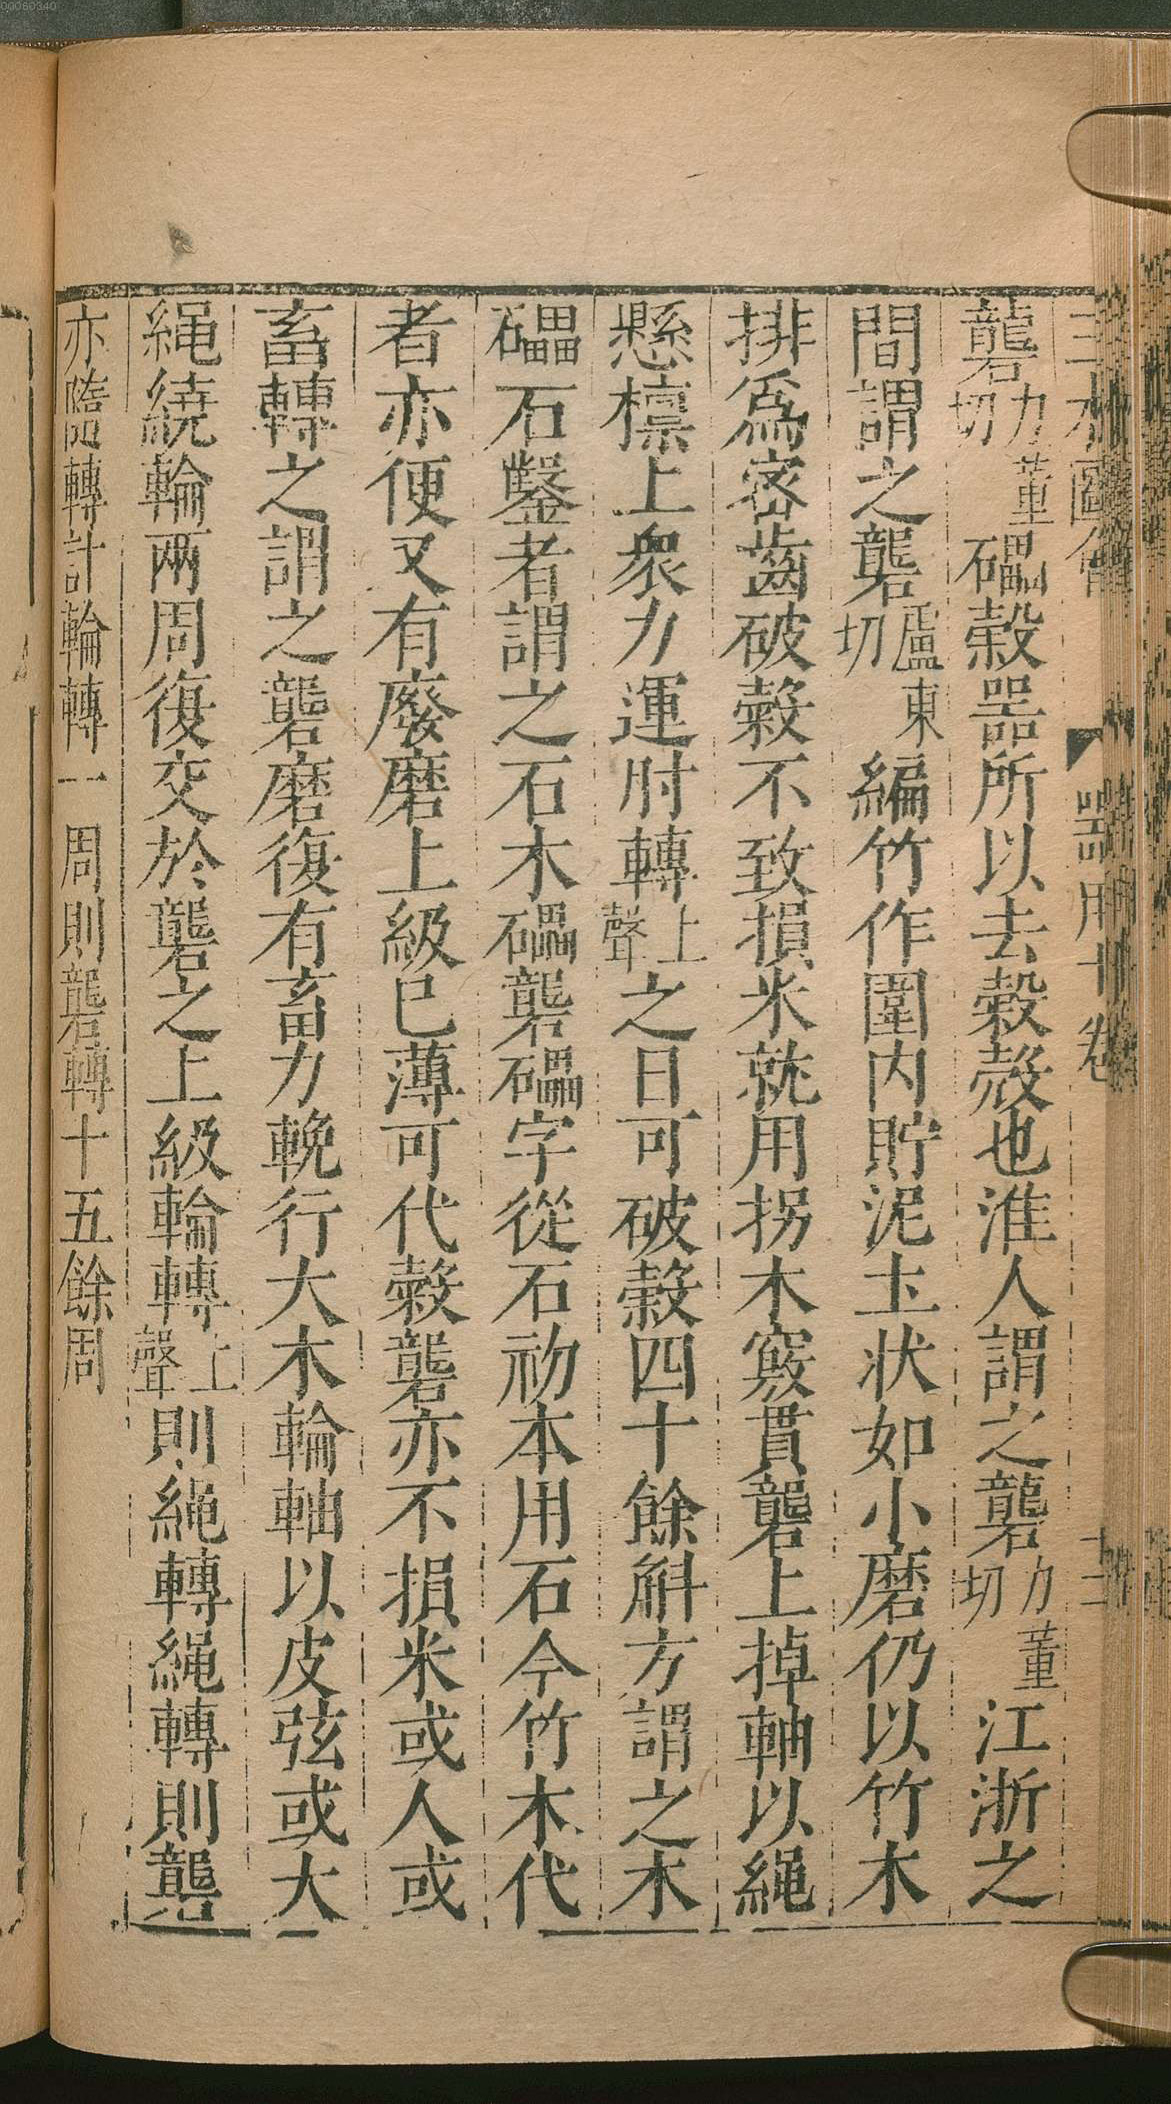 礱力董切礌穀噐所以去穀殼也淮人謂之礱力董切江浙之
間謂之礱盧東切編竹作圍内貯泥土状如小磨仍以竹木
排爲密齒破穀不致損米就用拐木竅貫礱上掉軸以繩
懸檁上衆力運肘轉上聲之日可破穀四十餘斛方謂之木
礌石鑿者謂之石木礌礱礌字從石初本用石今竹木代
者亦便又有廢磨上級已薄可代穀礱亦不損米或人或
畜轉之謂之礱磨復有畜力輓行大木輪軸以皮弦或大
繩繞輪兩周復交於礱之上級輪轉上聲則繩轉繩轉則礱
亦隨轉計輪轉一周則礱轉十五餘周
三才圖會 噐用十卷 十三
00060340